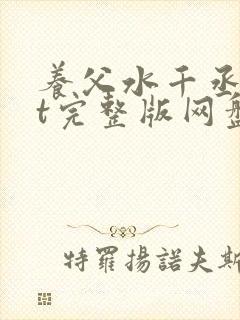 养父水千丞
t完整版网盘
特羅揚諾夫斯